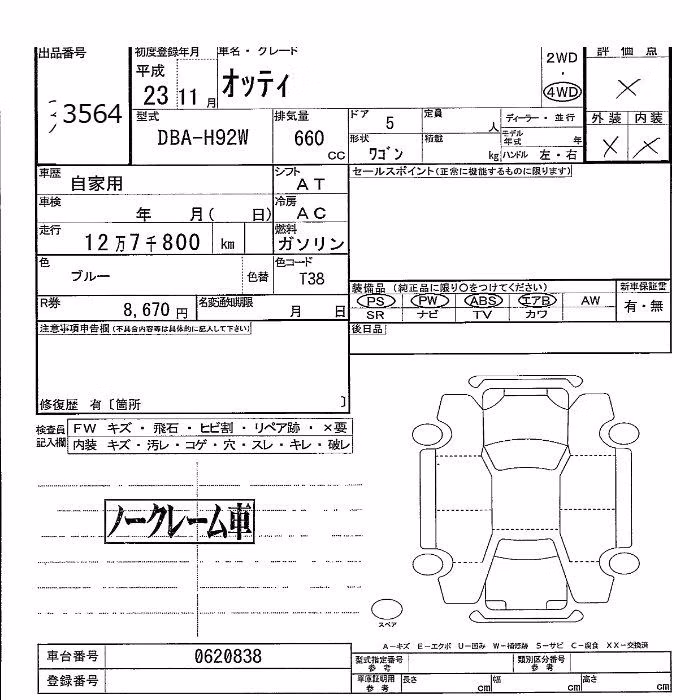 出品番号
3564
初度登録年月
平成
23 11 月
車名・グレード
オッティ
2WD
・
4WD
評 価 点
×
外 装 内 装
× ×
型式
DBA-H92W
排気量
660
CC
ドア 5
定員
人
ディーラー・並行
形状
ワゴン
積載
kg
モデル年式
年
ハンドル 左・右
車歴
自家用
シフト
AT
車検
年 月( 日)
冷房
AC
走行
12万7千800 km
燃料
ガソリン
色
ブルー
色替
色コード
T38
R券
8,670 円
名変通知期限
月 日
セールスポイント(正常に機能するものに限ります)
装備品 (純正品に限り○をつけてください)
PS PW ABS エアB AW
SR ナビ TV カワ
新車保証書
有・無
後日品
注意事項申告欄(不具合内容等は具体的に記入して下さい)
修復歴 有〔箇所 〕
検査員記入欄
FW キズ・飛石・ヒビ割・リペア跡・×要
内装 キズ・汚レ・コゲ・穴・スレ・キレ・破レ
ノークレーム車
スペア
A-キズ E-エクボ U-凹み W-補修跡 S-サビ C-腐食 XX-交換済
車台番号
0620838
登録番号
型式指定番号
参 考
類別区分番号
参 考
車庫証明用
参 考
長さ cm
幅 cm
高さ cm